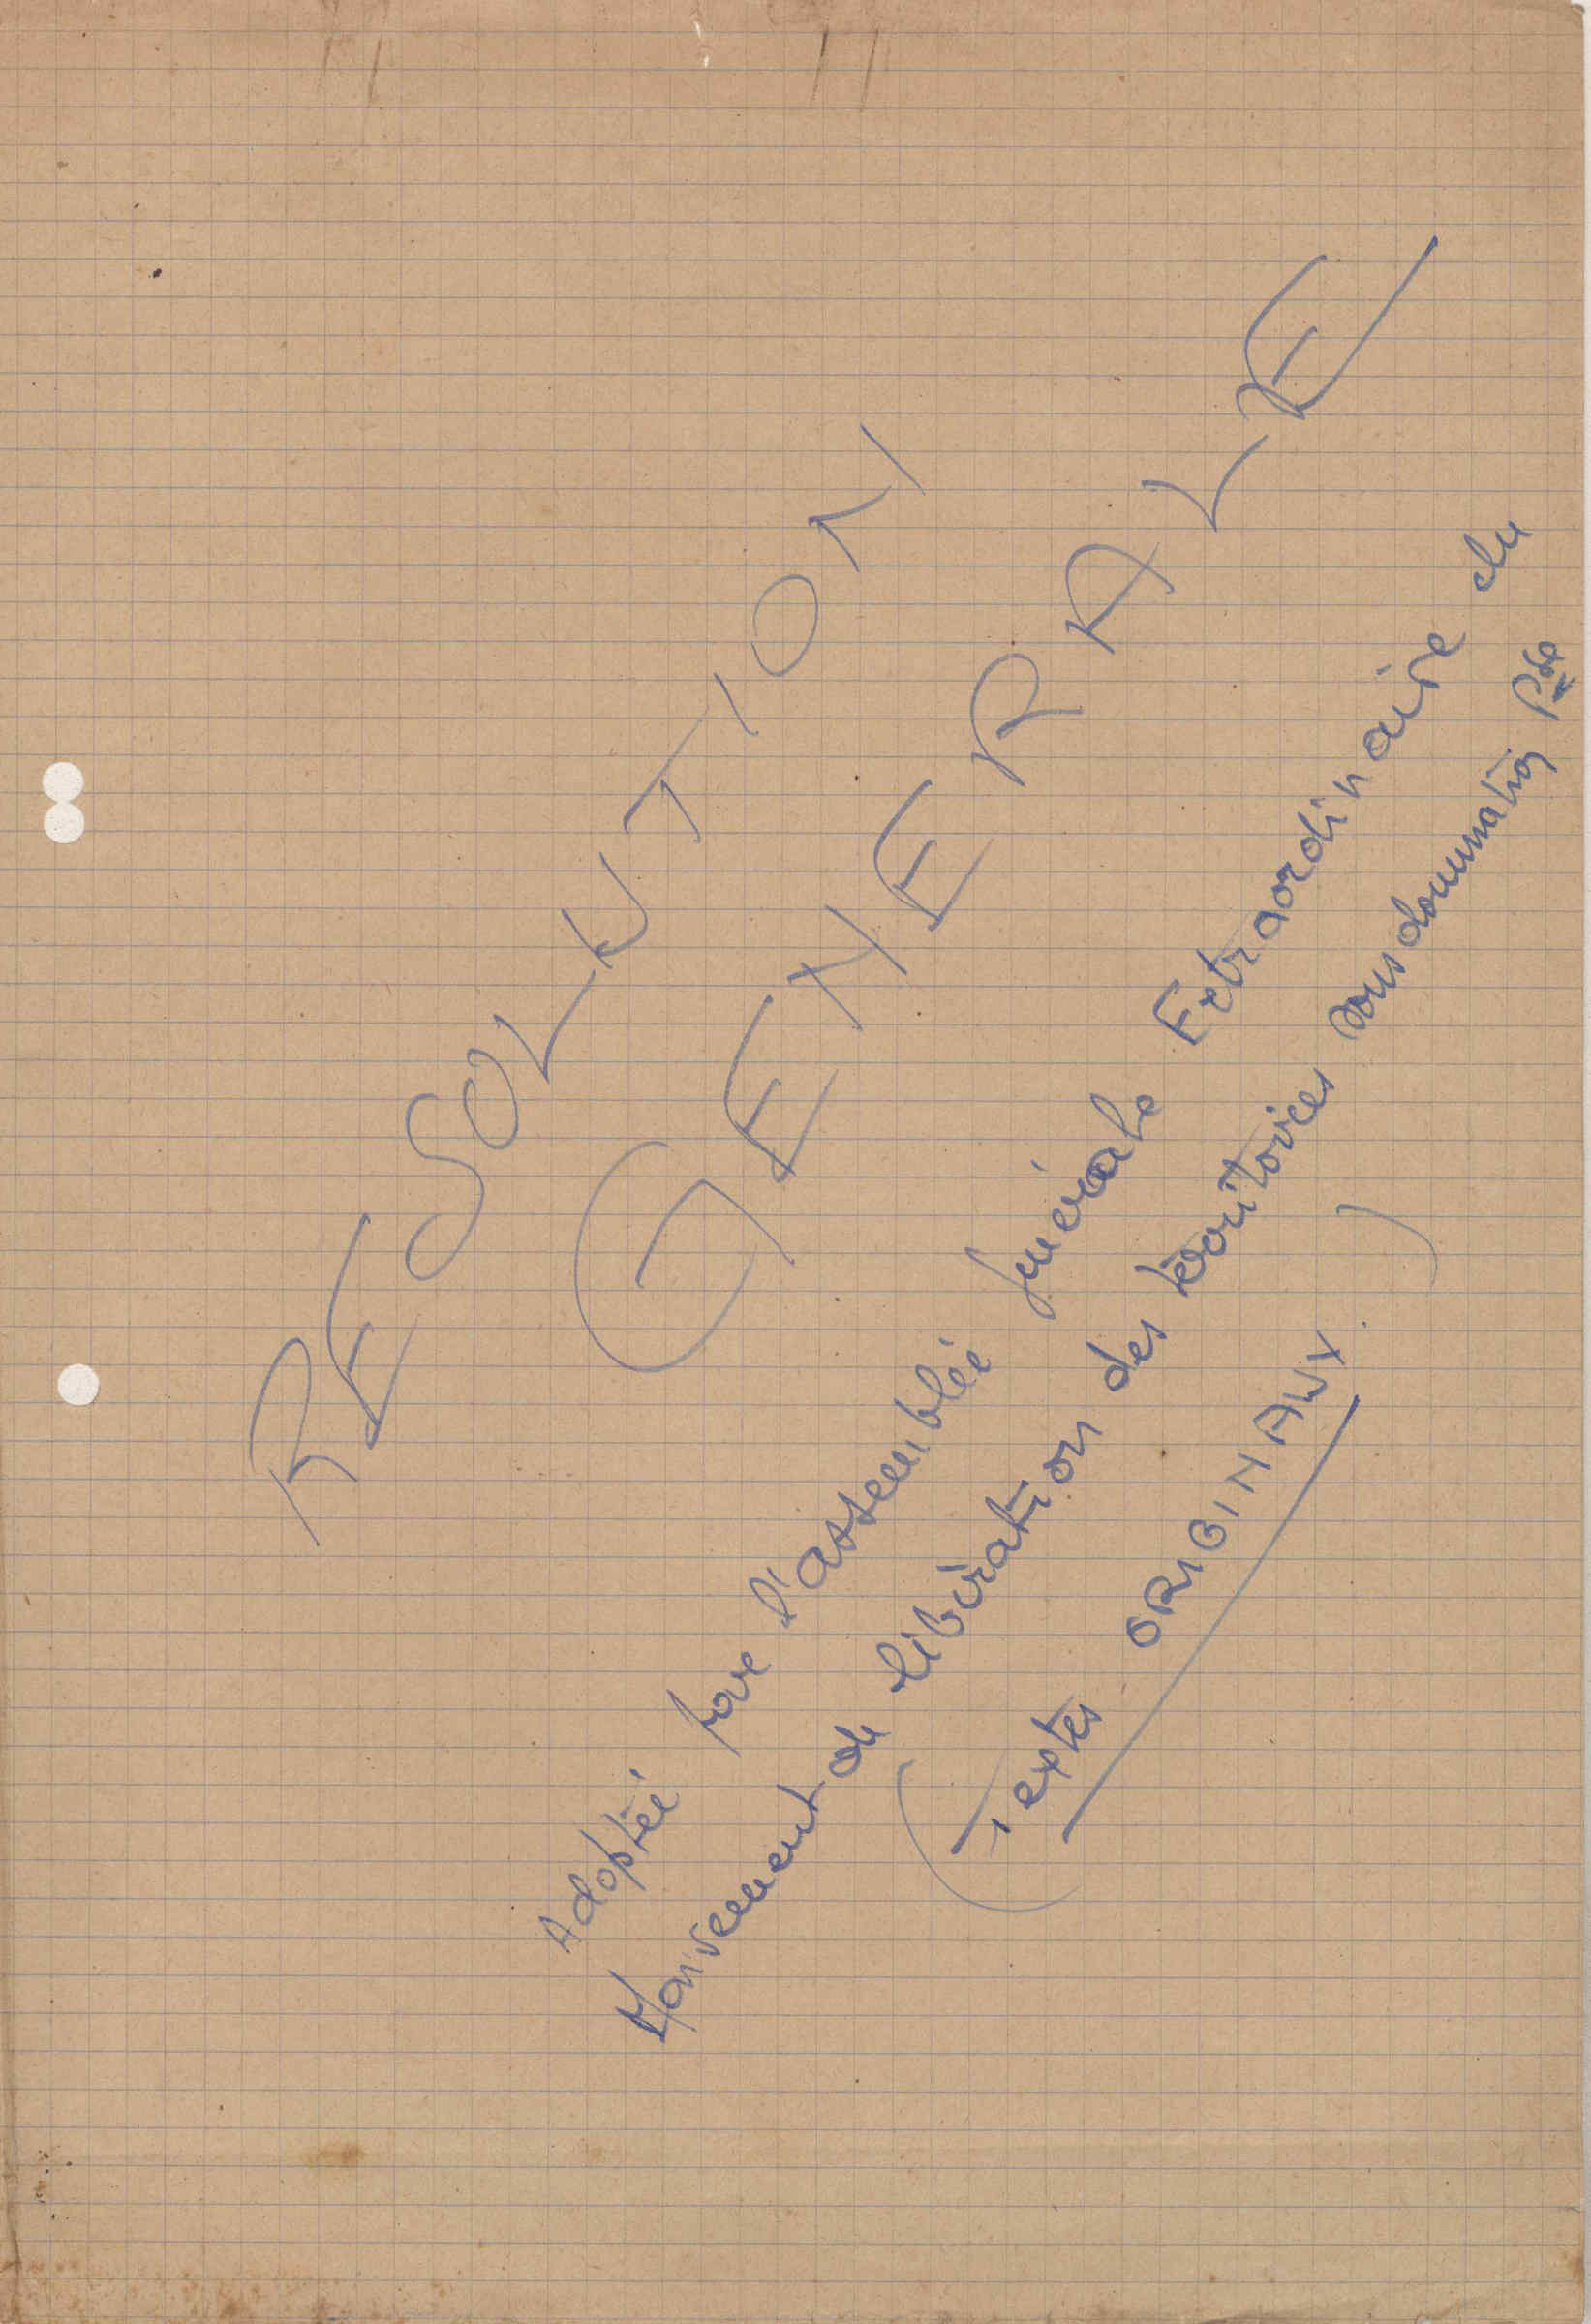 RESOLUTION
GENERALE
Adoptée par l'assemblée générale Extraordinaire du
Mouvement de libération des territoires sous domination Pse
(Textes ORIGINAUX.)